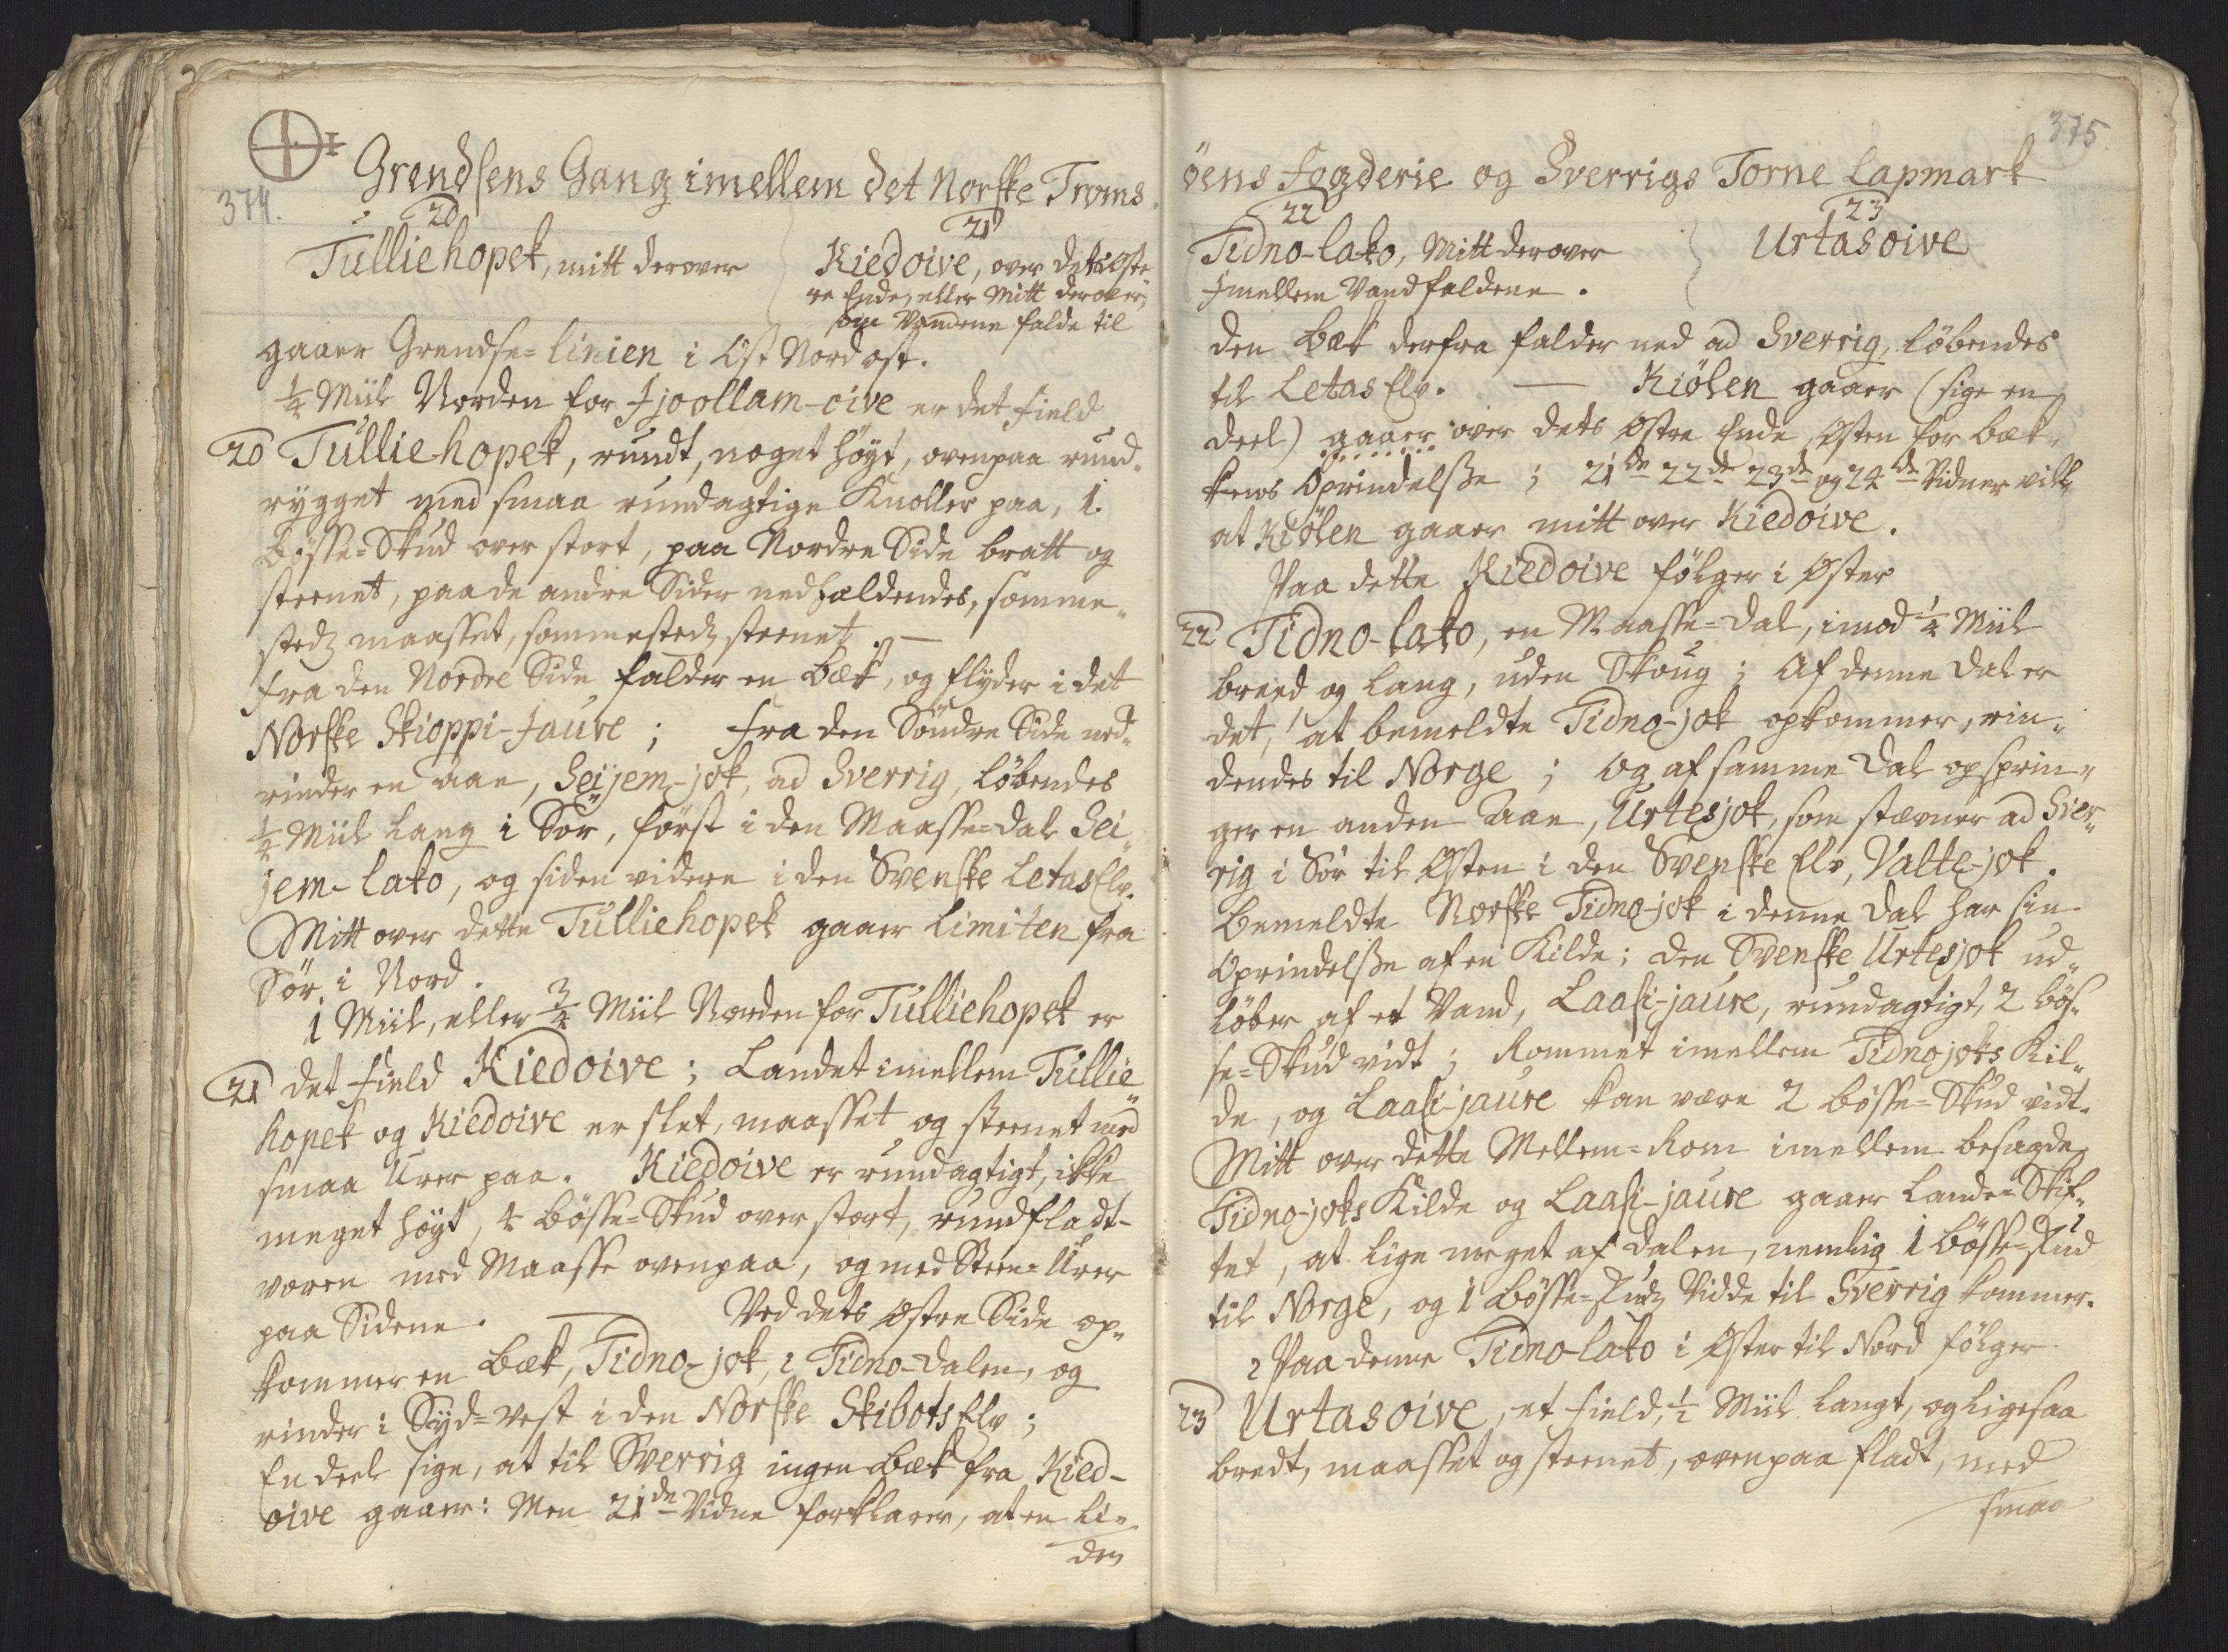 374.
Grendsens Gang imellem det Norske Troms
20
Tulliehopek, mitt derover
21
Kiedoive, over dets Øst-
re Ende, eller Mitt derover,
som Vandene falde til
gaaer Grendse=linien i Ost Nordost.
1/4 Miil Norden for Jjoollam-oive er det Field
20 Tulliehopek, rundt, noget höyt, ovenpaa rund-
rygget med smaa rundagtige Knoller paa, 1.
Bösse=Skud over stort, paa Nordre Side bratt og
steenet, paa de andre Sider nedhældendes, somme-
stedz maasset, sommestedz steenet. —
Fra den Nordre Side falder en Bæk, og flyder i det
Norske Skioppi-Jaure; Fra den Söndre Side ned-
rinder en Aae, Seijem-jok, ad Sverrig, löbendes
1/2 Miil lang i Sör, först i den Maasse=dal Sei-
jem-lako, og siden videre i den Svenske Letas Elv.
Mitt over dette Tulliehopek gaaer Limiten fra
Sör i Nord.
1 Miil, eller 3/4 Miil Norden for Tulliehopek er
21 det Field Kiedoive; Landet imellem Tullie-
hopek og Kiedoive er slet, maasset og steenet med
smaa Urer paa. Kiedoive er rundagtigt, ikke
meget höyt, 4 bösse=Skud over stort, rundfladt-
voren med Maasse ovenpaa, og med Steen=Urer
paa Sidene. — Ved dets Østre Side op-
kommer en Bæk, Tidno-jok, i Tidno-Dalen, og
rinder i Syd=Vest i den Norske Skibots Elv;
En deel sige, at til Sverrig ingen Bæk fra Kied-
oive gaaer: Men 21de Vidne forklarer, at en li-
den
375.
öens Fogderie og Sverrigs Torne Lapmark
22
Tidno-lako, Mitt derover
Imellem Vandfaldene.
23
Urtasoive
den Bæk derfra falder ned ad Sverrig, löbendes
til Letas Elv. — Kiölen gaaer (sige en
deel) gaaer over dets Østre Ende, Østen for Bæk-
kens Oprindelsse; 21de 22de 23de og 24de Vidner vill,
at Kiölen gaaer mitt over Kiedoive.
Paa dette Kiedoive fölger i Øster
22 Tidno-lako, en Maasse=Dal, imod 1/4 Miil
breed og lang, uden Skoug; Af denne Dal er
det, at bemeldte Tidno-jok opkommer, rin-
dendes til Norge; Og af samme Dal opsprin-
ger en anden Aae, Urtesjok, som stævner ad Sver-
rig i Sör til Østen i den Svenske Elv, Valte-jok.
Bemeldte Norske Tidno-jok i denne Dal har sin
Oprindelsse af en Kilde; den Svenske Urtesjok ud-
löber af et Vand, Laasi-jaure, rundagtigt, 2 bös-
se=Skud vidt; Rommet imellem Tidnojoks Kil-
de, og Laasi-jaure kan være 2 bösse=Skud vidt.
Mitt over dette Mellem=Rom imellem besagde
Tidno-joks Kilde og Laasi-jaure gaaer Lande=Skif-
tet, at lige meget af Dalen, nemlig 1 bösse=Skud
til Norge, og 1 Bösse=Skudz Vidde til Sverrig kommer.
Paa denne Tidno-lako i Øster til Nord fölger
23 Urtasoive, et Field, 1/2 Miil langt, og ligesaa
bredt, maasset og steenet, ovenpaa fladt, med
smaa